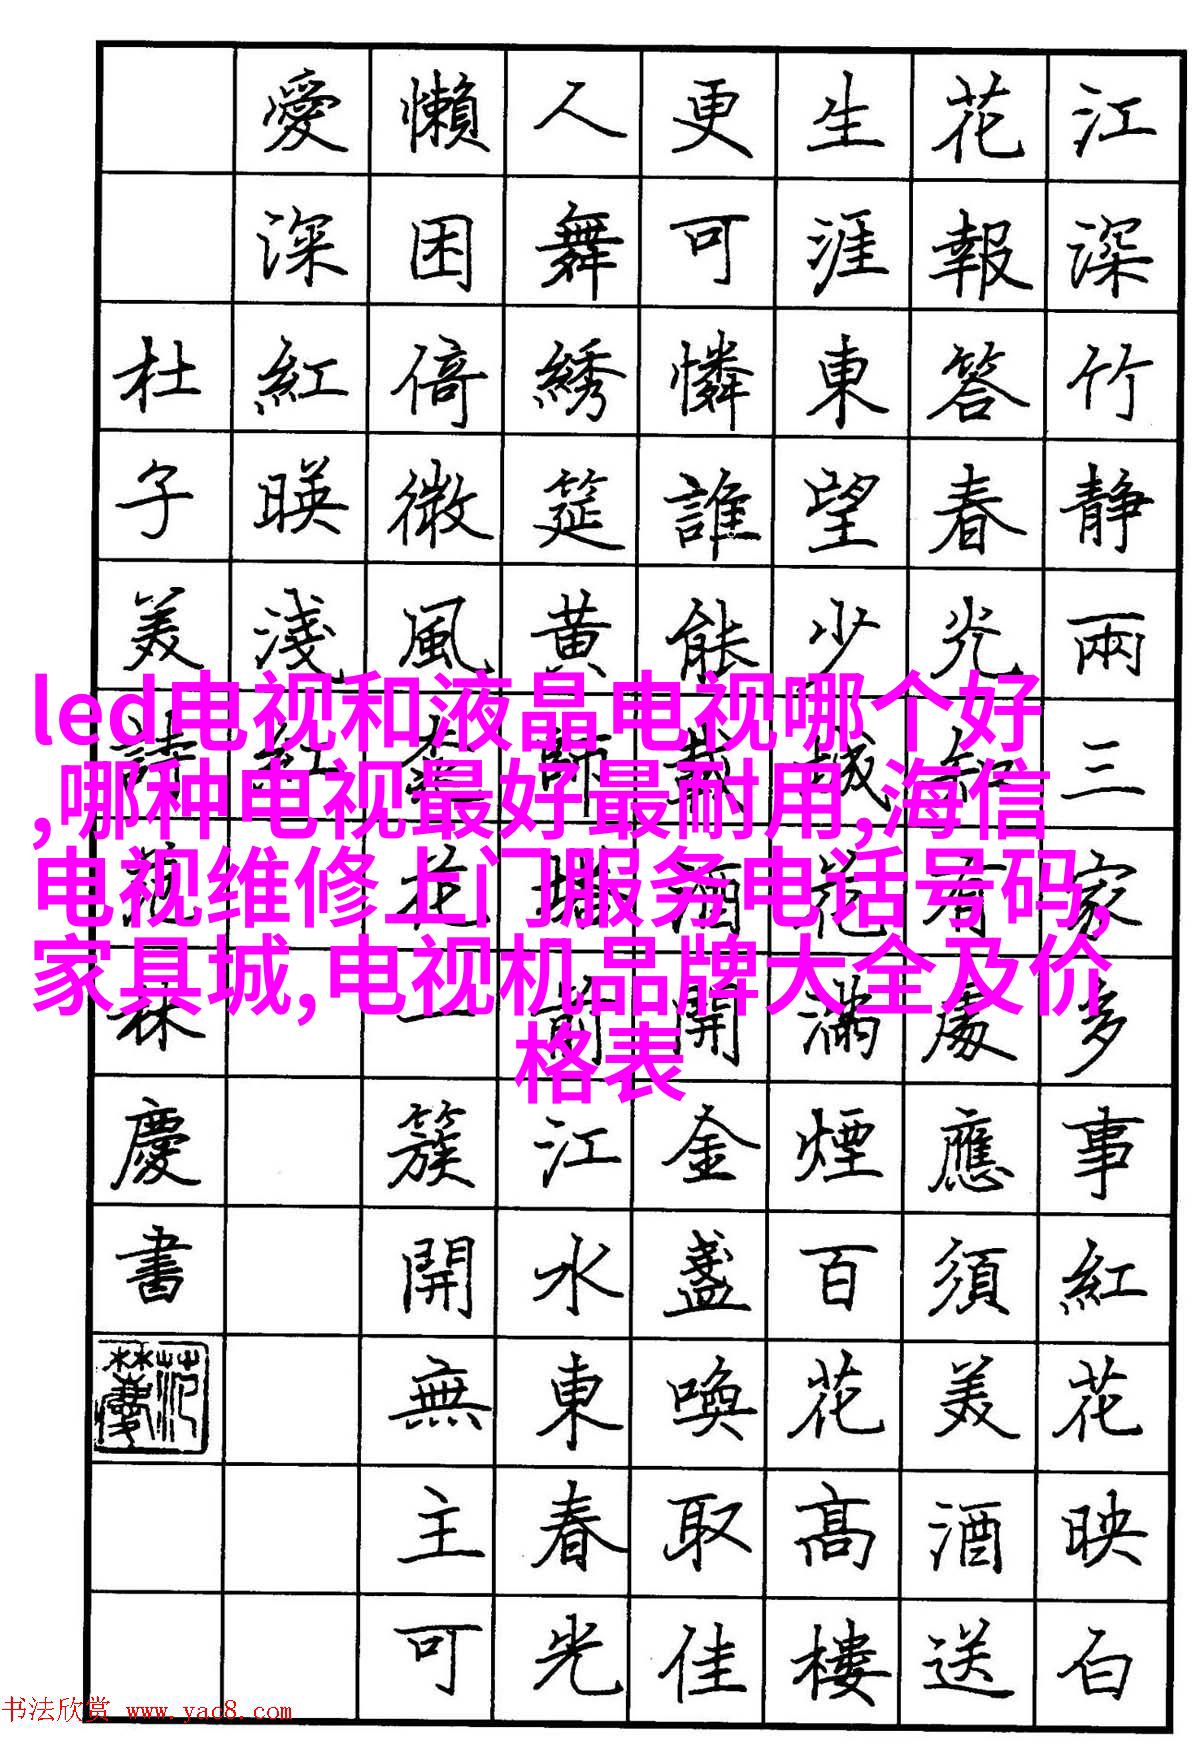 江深竹静兩三家多事紅花映白
花報答春光知有處應須美酒送
生涯東望少城花滿煙百花高樓
更可憐誰能載酒開金盞喚取佳
人舞綉筵黄師塔前江水東春光
懶困倚微風桃花一簇開無主可
愛深紅暎淺紅
杜子美詩范林慶書
范林慶
led电视和液晶电视哪个好
,哪种电视最好最耐用,海信
电视维修上门服务电话号码,
家具城,电视机品牌大全及价
格表
书法欣赏 www.yac8.com